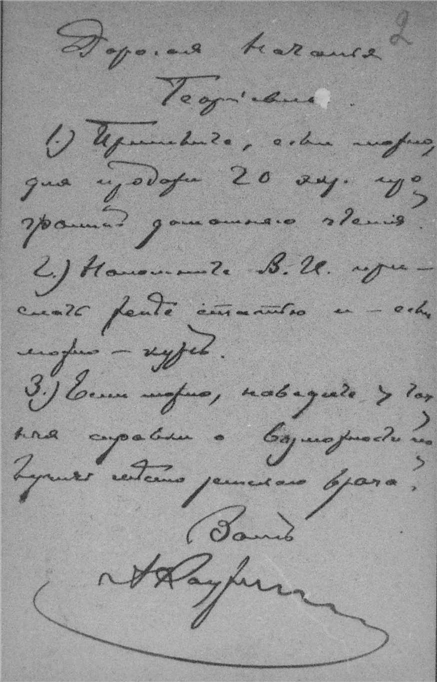 2
Дорогая Наталья
Георгіевна.
1.) Пришлите, если можно,
для продажи 20 экз. про
граммъ домашняго чтенія.
2.) Напомните В. И. при-
слать статью и – если
можно – курсъ.
3.) Если можно, наведите у
справки о возможности по
лучить мѣсто земскаго врача.
Вашъ